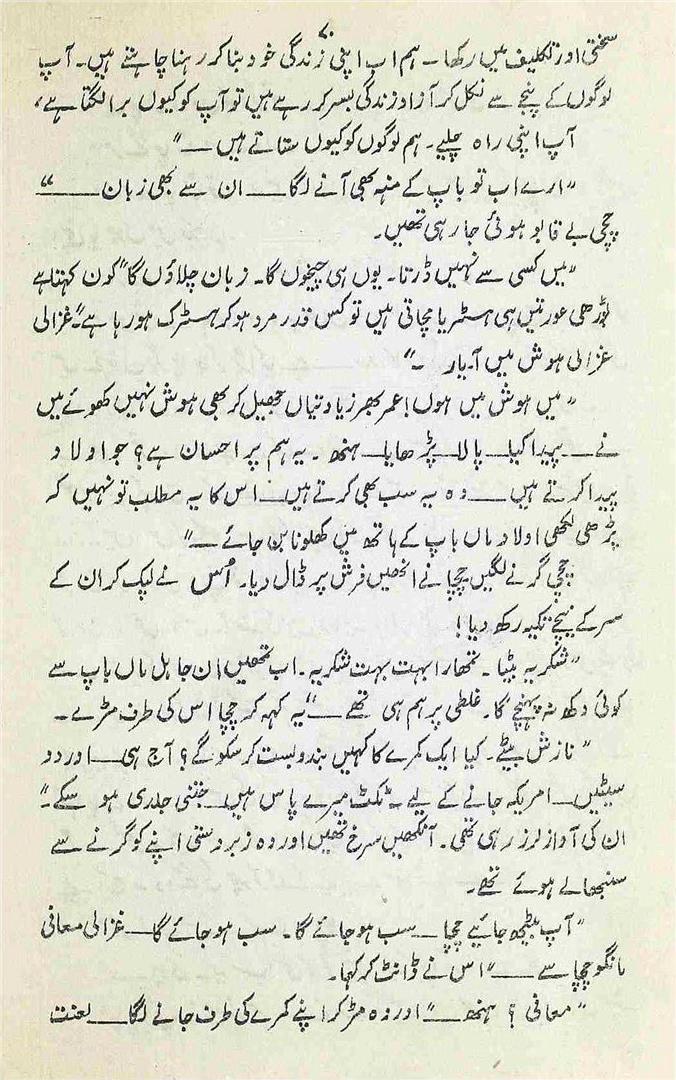 ۷۰
سختی اور تکلیف میں رکھا ۔ ہم اب اپنی زندگی خود بنا کر رہنا چاہتے ہیں۔ آپ
لوگوں کے پنجے سے نکل کر آزاد زندگی بسر کر رہے ہیں تو آپ کو کیوں برا لگتا ہے،
آپ اپنی راہ چلیے۔ ہم لوگوں کو کیوں ستاتے ہیں ــــ "
"ارے اب تو باپ کے منہ بھی آنے لگا ــــ ان سے بھی زبان ــــ "
چچی بے قابو ہوئی جا رہی تھیں۔
"میں کسی سے نہیں ڈرتا۔ یوں ہی چیخوں گا۔ زبان چلاؤں گا" کون کہتا ہے
بوڑھی عورتیں ہی ہسٹریا مچاتی ہیں تو کس قدر مرد ہو کر ہسٹرک ہو رہا ہے" غزالی
غزالی ہوش میں آ یار ۔"
" میں ہوش میں ہوں! عمر بھر زیادتیاں جھیل کر بھی ہوش نہیں کھوئے ہیں
نے ــــ پیدا کیا ــــ پالا ــــ پڑھایا ــــ ہنھ ۔ یہ ہم پر احسان ہے؟ جو اولاد
پیدا کرتے ہیں ــــ وہ یہ سب بھی کرتے ہیں ــــ اس کا یہ مطلب تو نہیں کہ
پڑھی لکھی اولاد ماں باپ کے ہاتھ میں کھلونا بن جائے ــــ "
چچی گرنے لگیں چچا نے انھیں فرش پر ڈال دیا۔ اُس نے لپک کر ان کے
سر کے نیچے تکیہ رکھ دیا!
"شکریہ بیٹا ۔ تمھارا بہت بہت شکریہ۔ اب تمھیں ان جاہل ماں باپ سے
کوئی دکھ نہ پہنچے گا۔ غلطی پر ہم ہی تھے ــــ " یہ کہہ کر چچا اس کی طرف مڑے۔
" نازش بیٹے۔ کیا ایک کمرے کا کہیں بندوبست کر سکو گے؟ آج ہی ــــ اور دو
سیٹیں ــــ امریکہ جانے کے لیے ۔ ٹکٹ میرے پاس ہیں ــــ جتنی جلدی ہو سکے۔"
ان کی آواز لرز رہی تھی۔ آنکھیں سرخ تھیں اور وہ زبردستی اپنے کو گرنے سے
سنبھالے ہوئے تھے۔
"آپ بیٹھ جائیے چچا ــــ سب ہو جائے گا۔ سب ہو جائے گا ــــ غزالی معافی
مانگو چچا سے ــــ " اس نے ڈانٹ کر کہا۔
" معافی ؟ ہنھ ــــ " اور وہ مڑ کر اپنے کمرے کی طرف جانے لگا ــــ لعنت